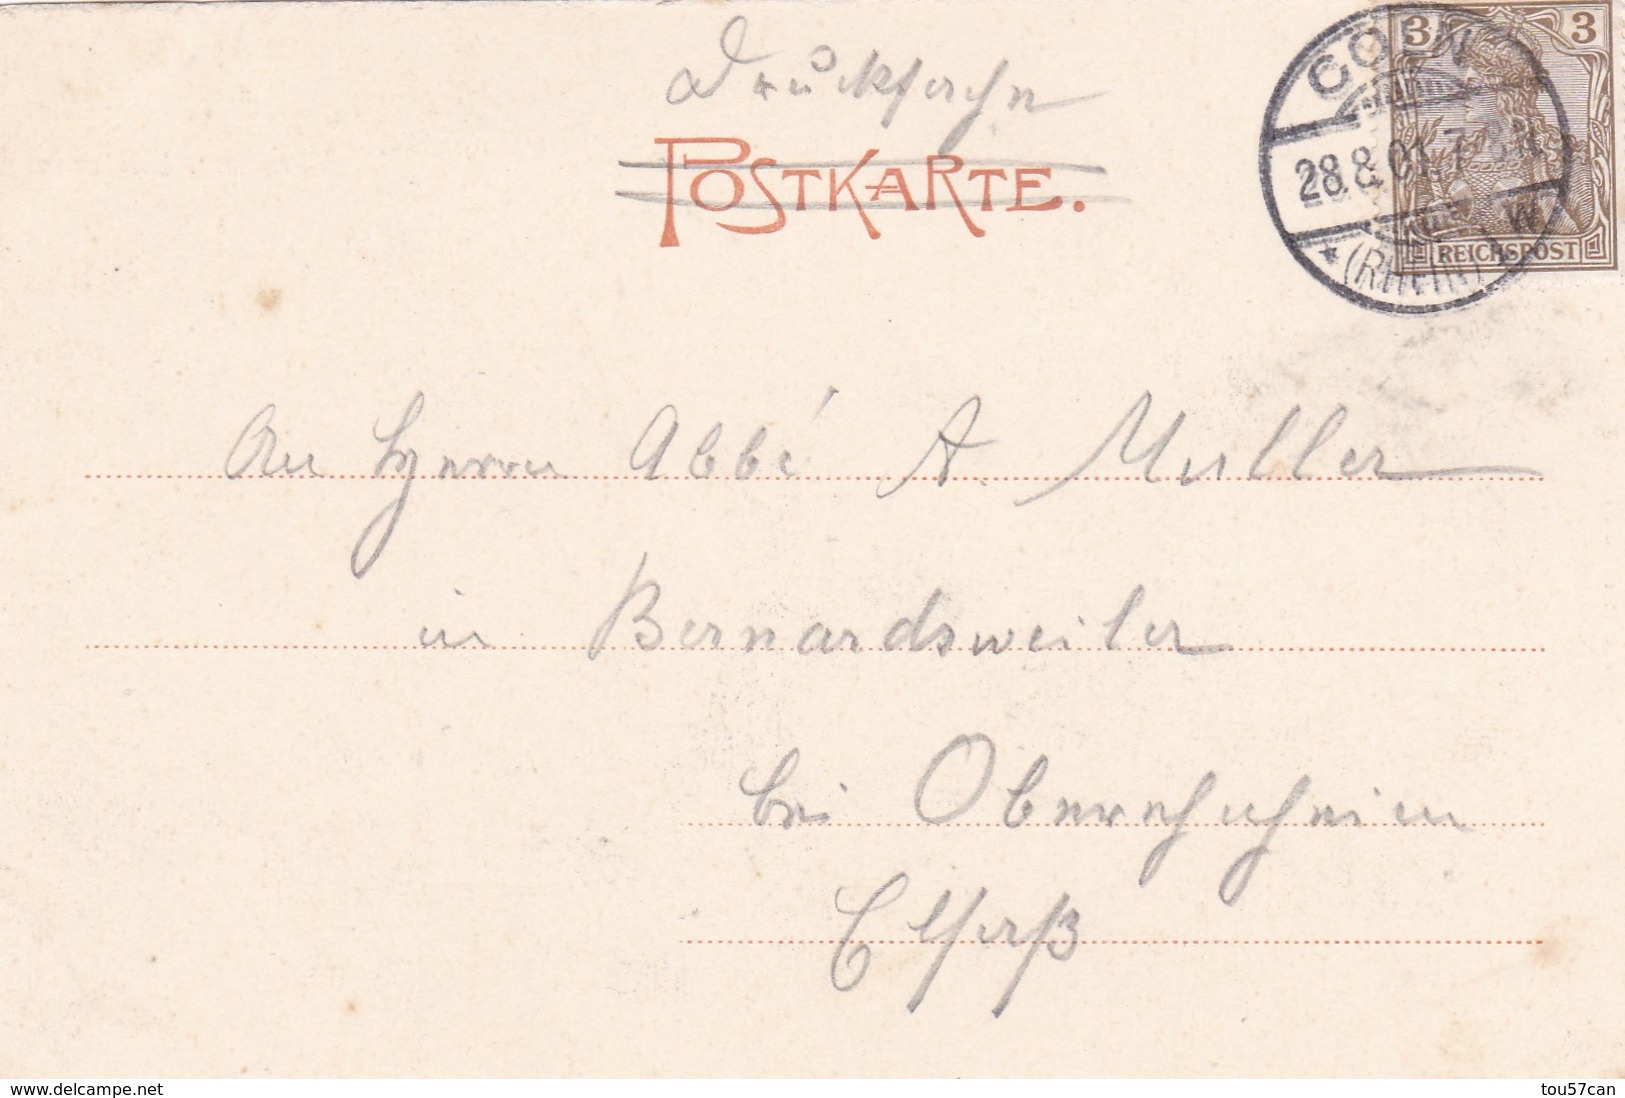 Drucksache
POSTKARTE.
3 3
CÖLN
28.8.01.7
(RHEIN) W
REICHSPOST
An Herrn Abbé A. Muller
in Bernardsweiler
bei Oberehnheim
Elsaß
www.delcampe.net
tou57can